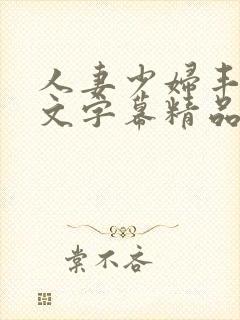 人妻少婦丰
文字幕精品
棠不吝